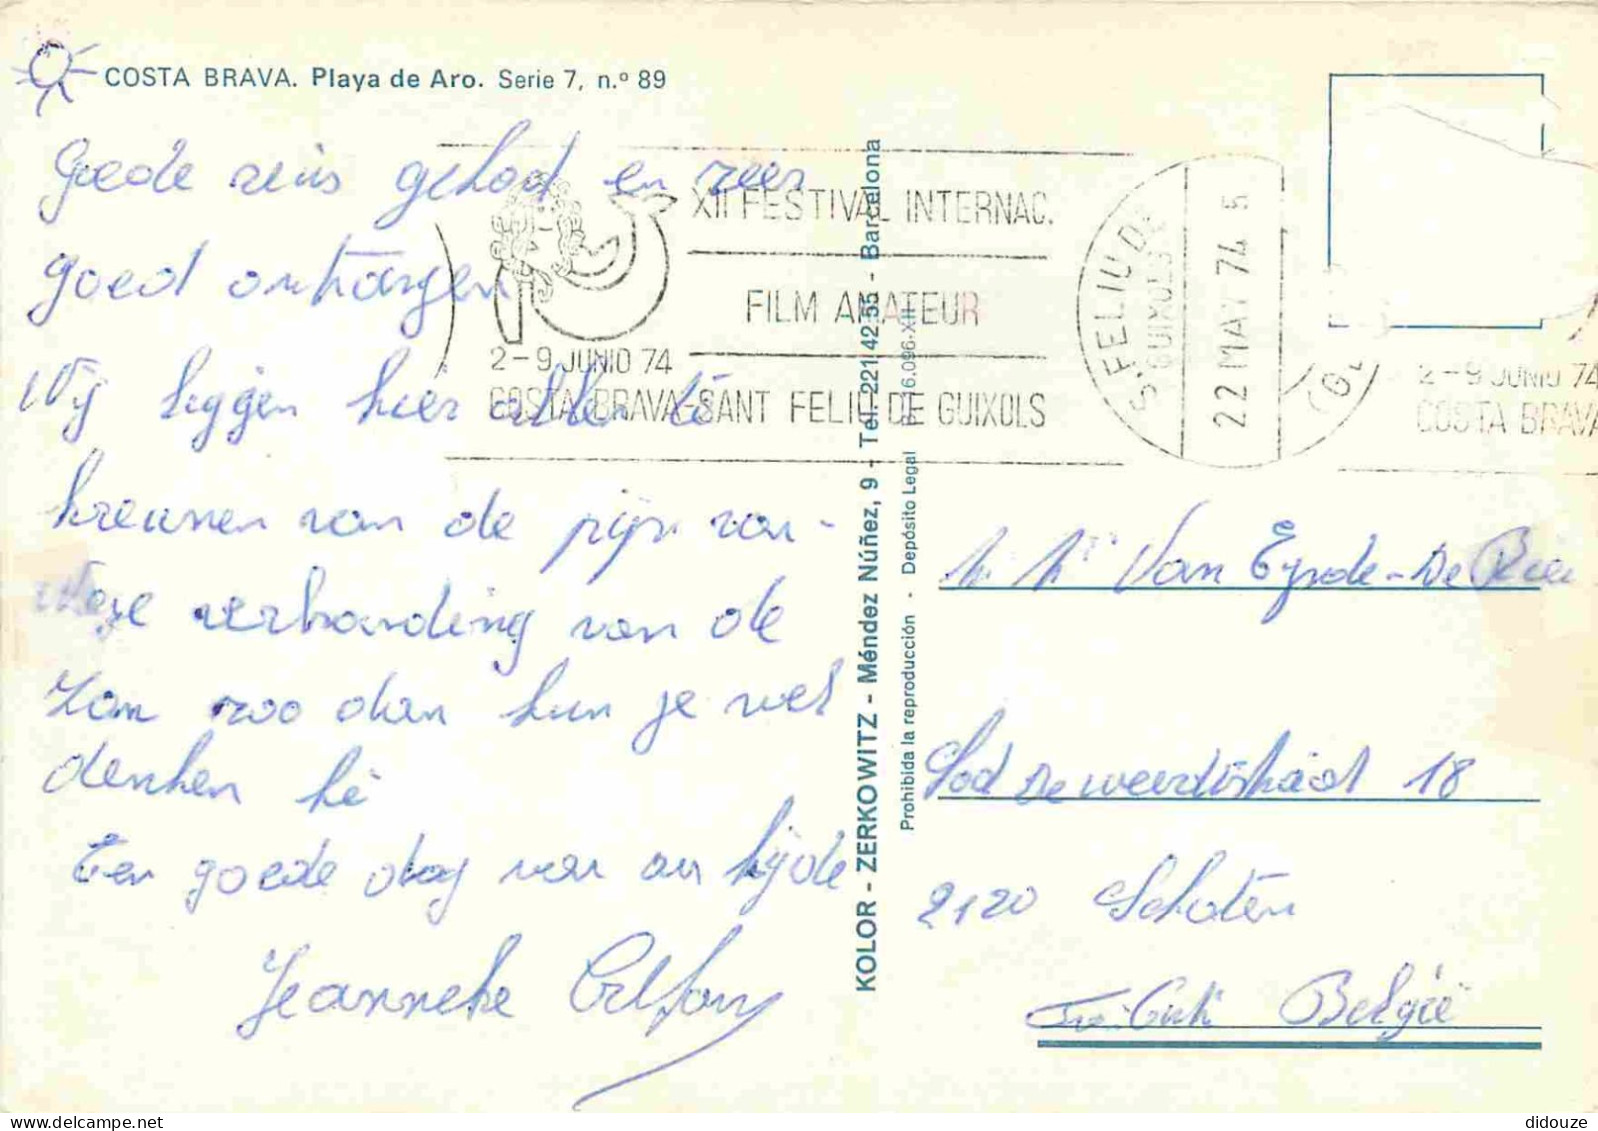 COSTA BRAVA. Playa de Aro. Serie 7, n.º 89
Goede reis gehad en zeer
goed ontvangen
Wij liggen hier allen te
kreunen van de pijn van-
wege verbranding van de
zon zoo dan kun je wel
denken hé
Een goede dag van on bijde
Jeanneke Alfons
XII FESTIVAL INTERNAC.
FILM AMATEUR
2-9 JUNIO 74
COSTA BRAVA-SANT FELIU DE GUIXOLS
S. FELIU DE
GUIXOLS
22 MAY 74 5
(GE
2-9 JUNIO 74
COSTA BRAVA
KOLOR - ZERKOWITZ - Méndez Núñez, 9 - Tel. 221 42 55 - Barcelona
Prohibida la reproducción - Depósito Legal 6.096-XII
Van Eynde-De
weerdtstraat 18
2120 Schoten
België
didouze